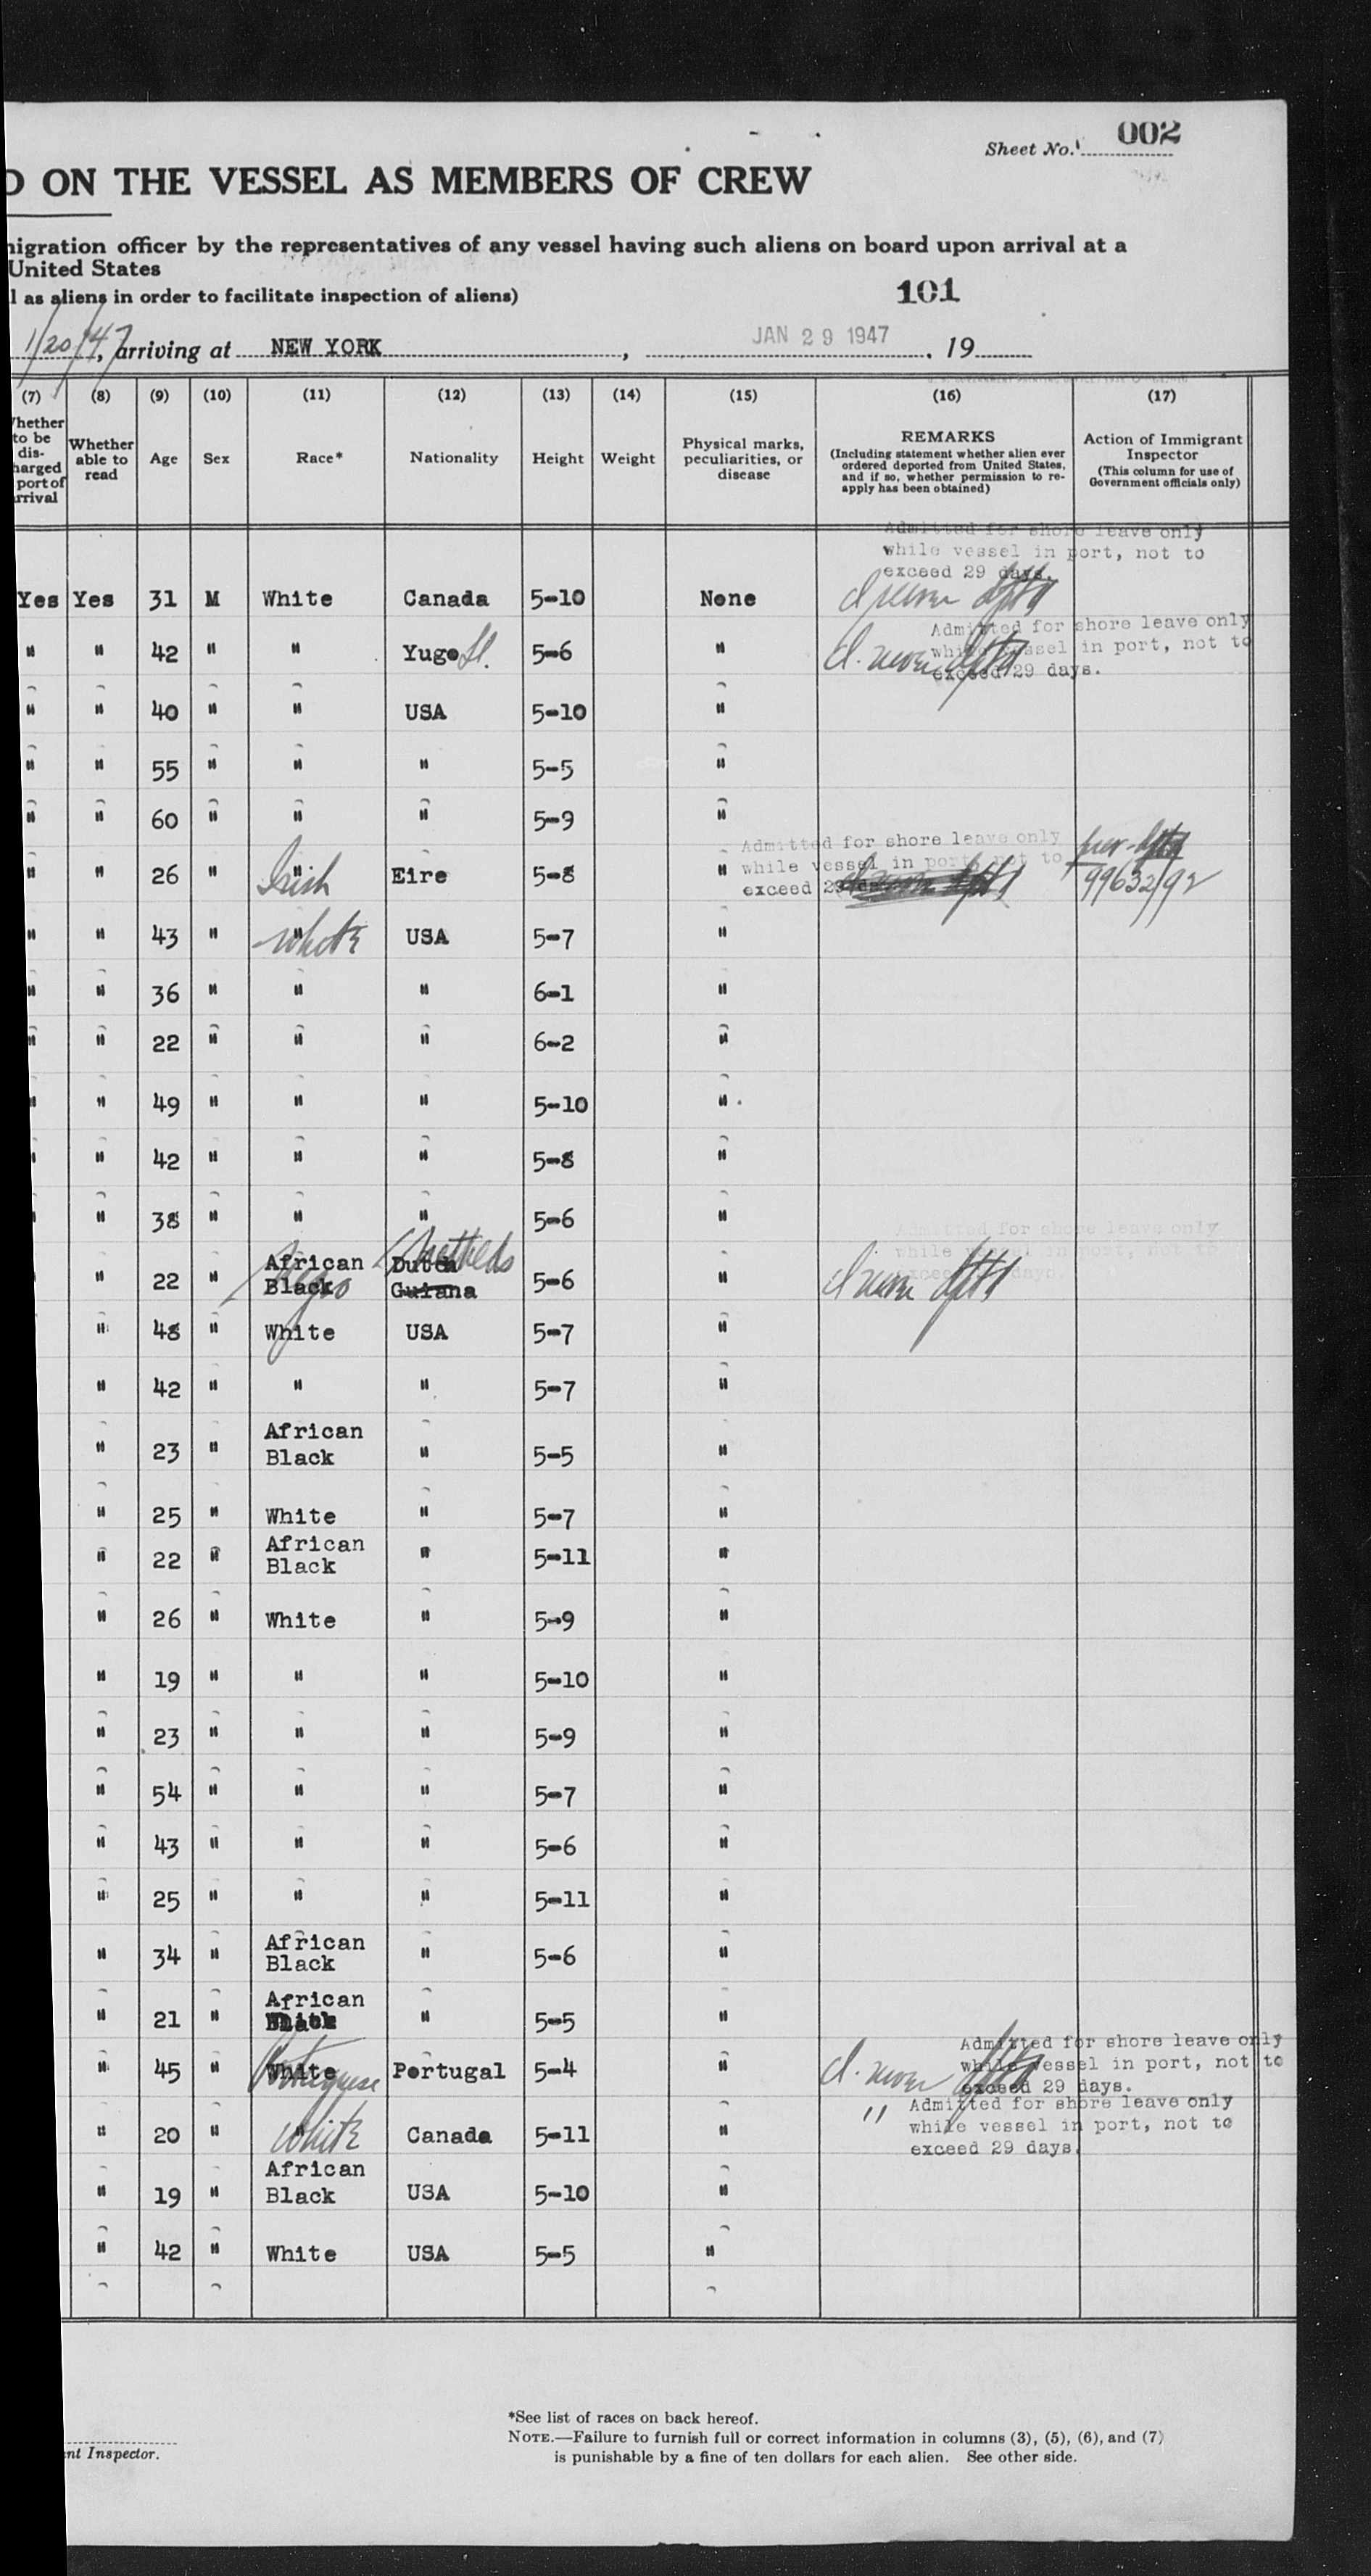 Sheet No. 002
ON THE VESSEL AS MEMBERS OF CREW
migration officer by the representatives of any vessel having such aliens on board upon arrival at a
United States
l as aliens in order to facilitate inspection of aliens)
101
1/20/47, arriving at NEW YORK, JAN 29 1947, 19
(7) (8) (9) (10) (11) (12) (13) (14) (15) (16) (17)
Whether to be dis-charged port of arrival
Whether able to read
Age
Sex
Race*
Nationality
Height
Weight
Physical marks, peculiarities, or disease
REMARKS
(Including statement whether alien ever ordered deported from United States, and if so, whether permission to re-apply has been obtained)
Action of Immigrant Inspector
(This column for use of Government officials only)
Admitted for shore leave only
while vessel in port, not to
exceed 29 days.
Yes Yes 31 M White Canada 5-10 None
Admitted for shore leave only
while vessel in port, not to
exceed 29 days.
" " 42 " " Yugo Sl. 5-6 "
" " 40 " " USA 5-10 "
" " 55 " " " 5-5 "
" " 60 " " " 5-9 "
Admitted for shore leave only
while vessel in port, not to
exceed 29 days
" " 26 " " Irish Eire 5-8 " 99632/92
" " 43 " " White USA 5-7 "
" " 36 " " " 6-1 "
" " 22 " " " 6-2 "
" " 49 " " " 5-10 "
" " 42 " " " 5-8 "
" " 38 " " " 5-6 "
Admitted for shore leave only
while vessel in port, not to
exceed 29 days.
" 22 " African Black Negro Dutch Guiana Netherlds 5-6 "
" 48 " White USA 5-7 "
" 42 " " " 5-7 "
" 23 " African Black " 5-5 "
" 25 " White " 5-7 "
" 22 " African Black " 5-11 "
" 26 " White " 5-9 "
" 19 " " " 5-10 "
" 23 " " " 5-9 "
" 54 " " " 5-7 "
" 43 " " " 5-6 "
" 25 " " " 5-11 "
" 34 " African Black " 5-6 "
" 21 " African Black " 5-5 "
Admitted for shore leave only
while vessel in port, not to
exceed 29 days.
" 45 " White Portuguese Portugal 5-4 "
Admitted for shore leave only
while vessel in port, not to
exceed 29 days.
" 20 " " White Canada 5-11 " "
" 19 " African Black USA 5-10 "
" 42 " White USA 5-5 "
*See list of races on back hereof.
NOTE.—Failure to furnish full or correct information in columns (3), (5), (6), and (7)
is punishable by a fine of ten dollars for each alien. See other side.
nt Inspector.